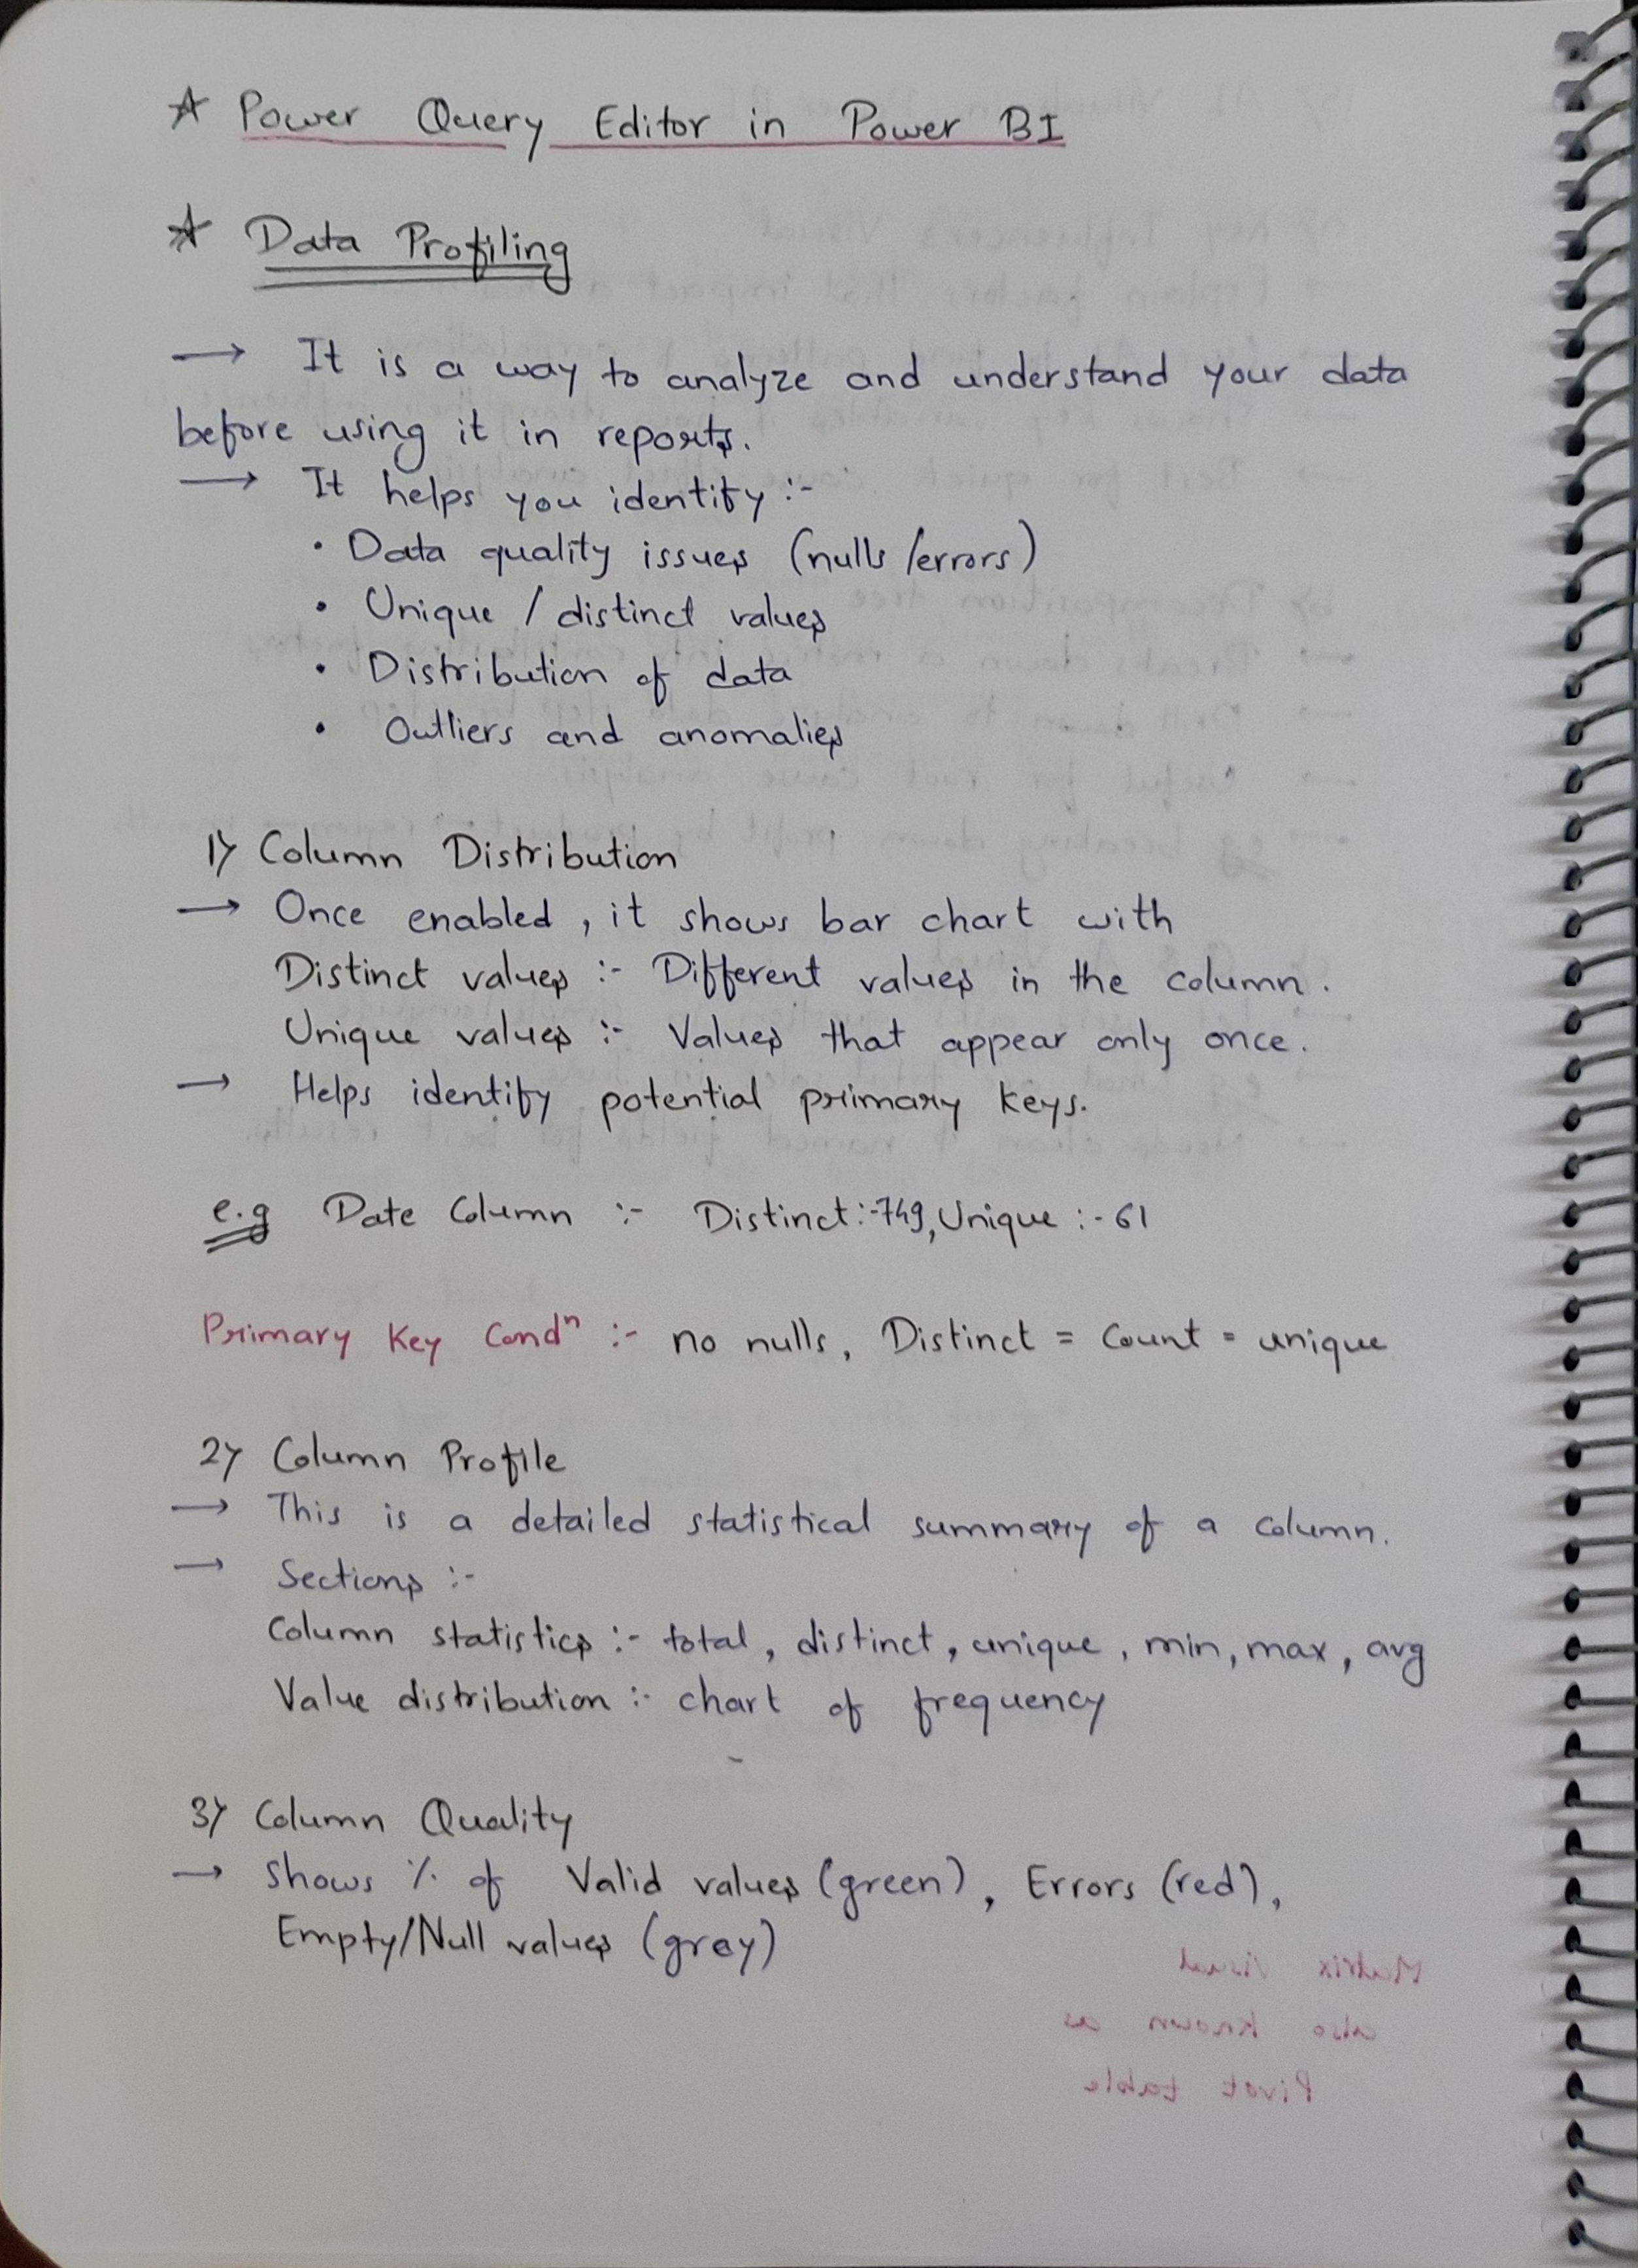 ☆ Power Query Editor in Power BI
☆ Data Profiling
→ It is a way to analyze and understand your data
before using it in reports.
→ It helps you identify :-
• Data quality issues (nulls /errors)
• Unique / distinct values
• Distribution of data
• Outliers and anomalies
1) Column Distribution
→ Once enabled, it shows bar chart with
Distinct values :- Different values in the column.
Unique values :- Values that appear only once.
→ Helps identify potential primary keys.
e.g Date Column :- Distinct:-749, Unique :- 61
Primary Key Condⁿ :- no nulls, Distinct = Count = unique
2) Column Profile
→ This is a detailed statistical summary of a column.
→ Sections :-
Column statistics :- total, distinct, unique, min, max, avg
Value distribution :- chart of frequency
3) Column Quality
→ Shows % of Valid values (green), Errors (red),
Empty/Null values (grey)
Matrix visual
also known as
Pivot table